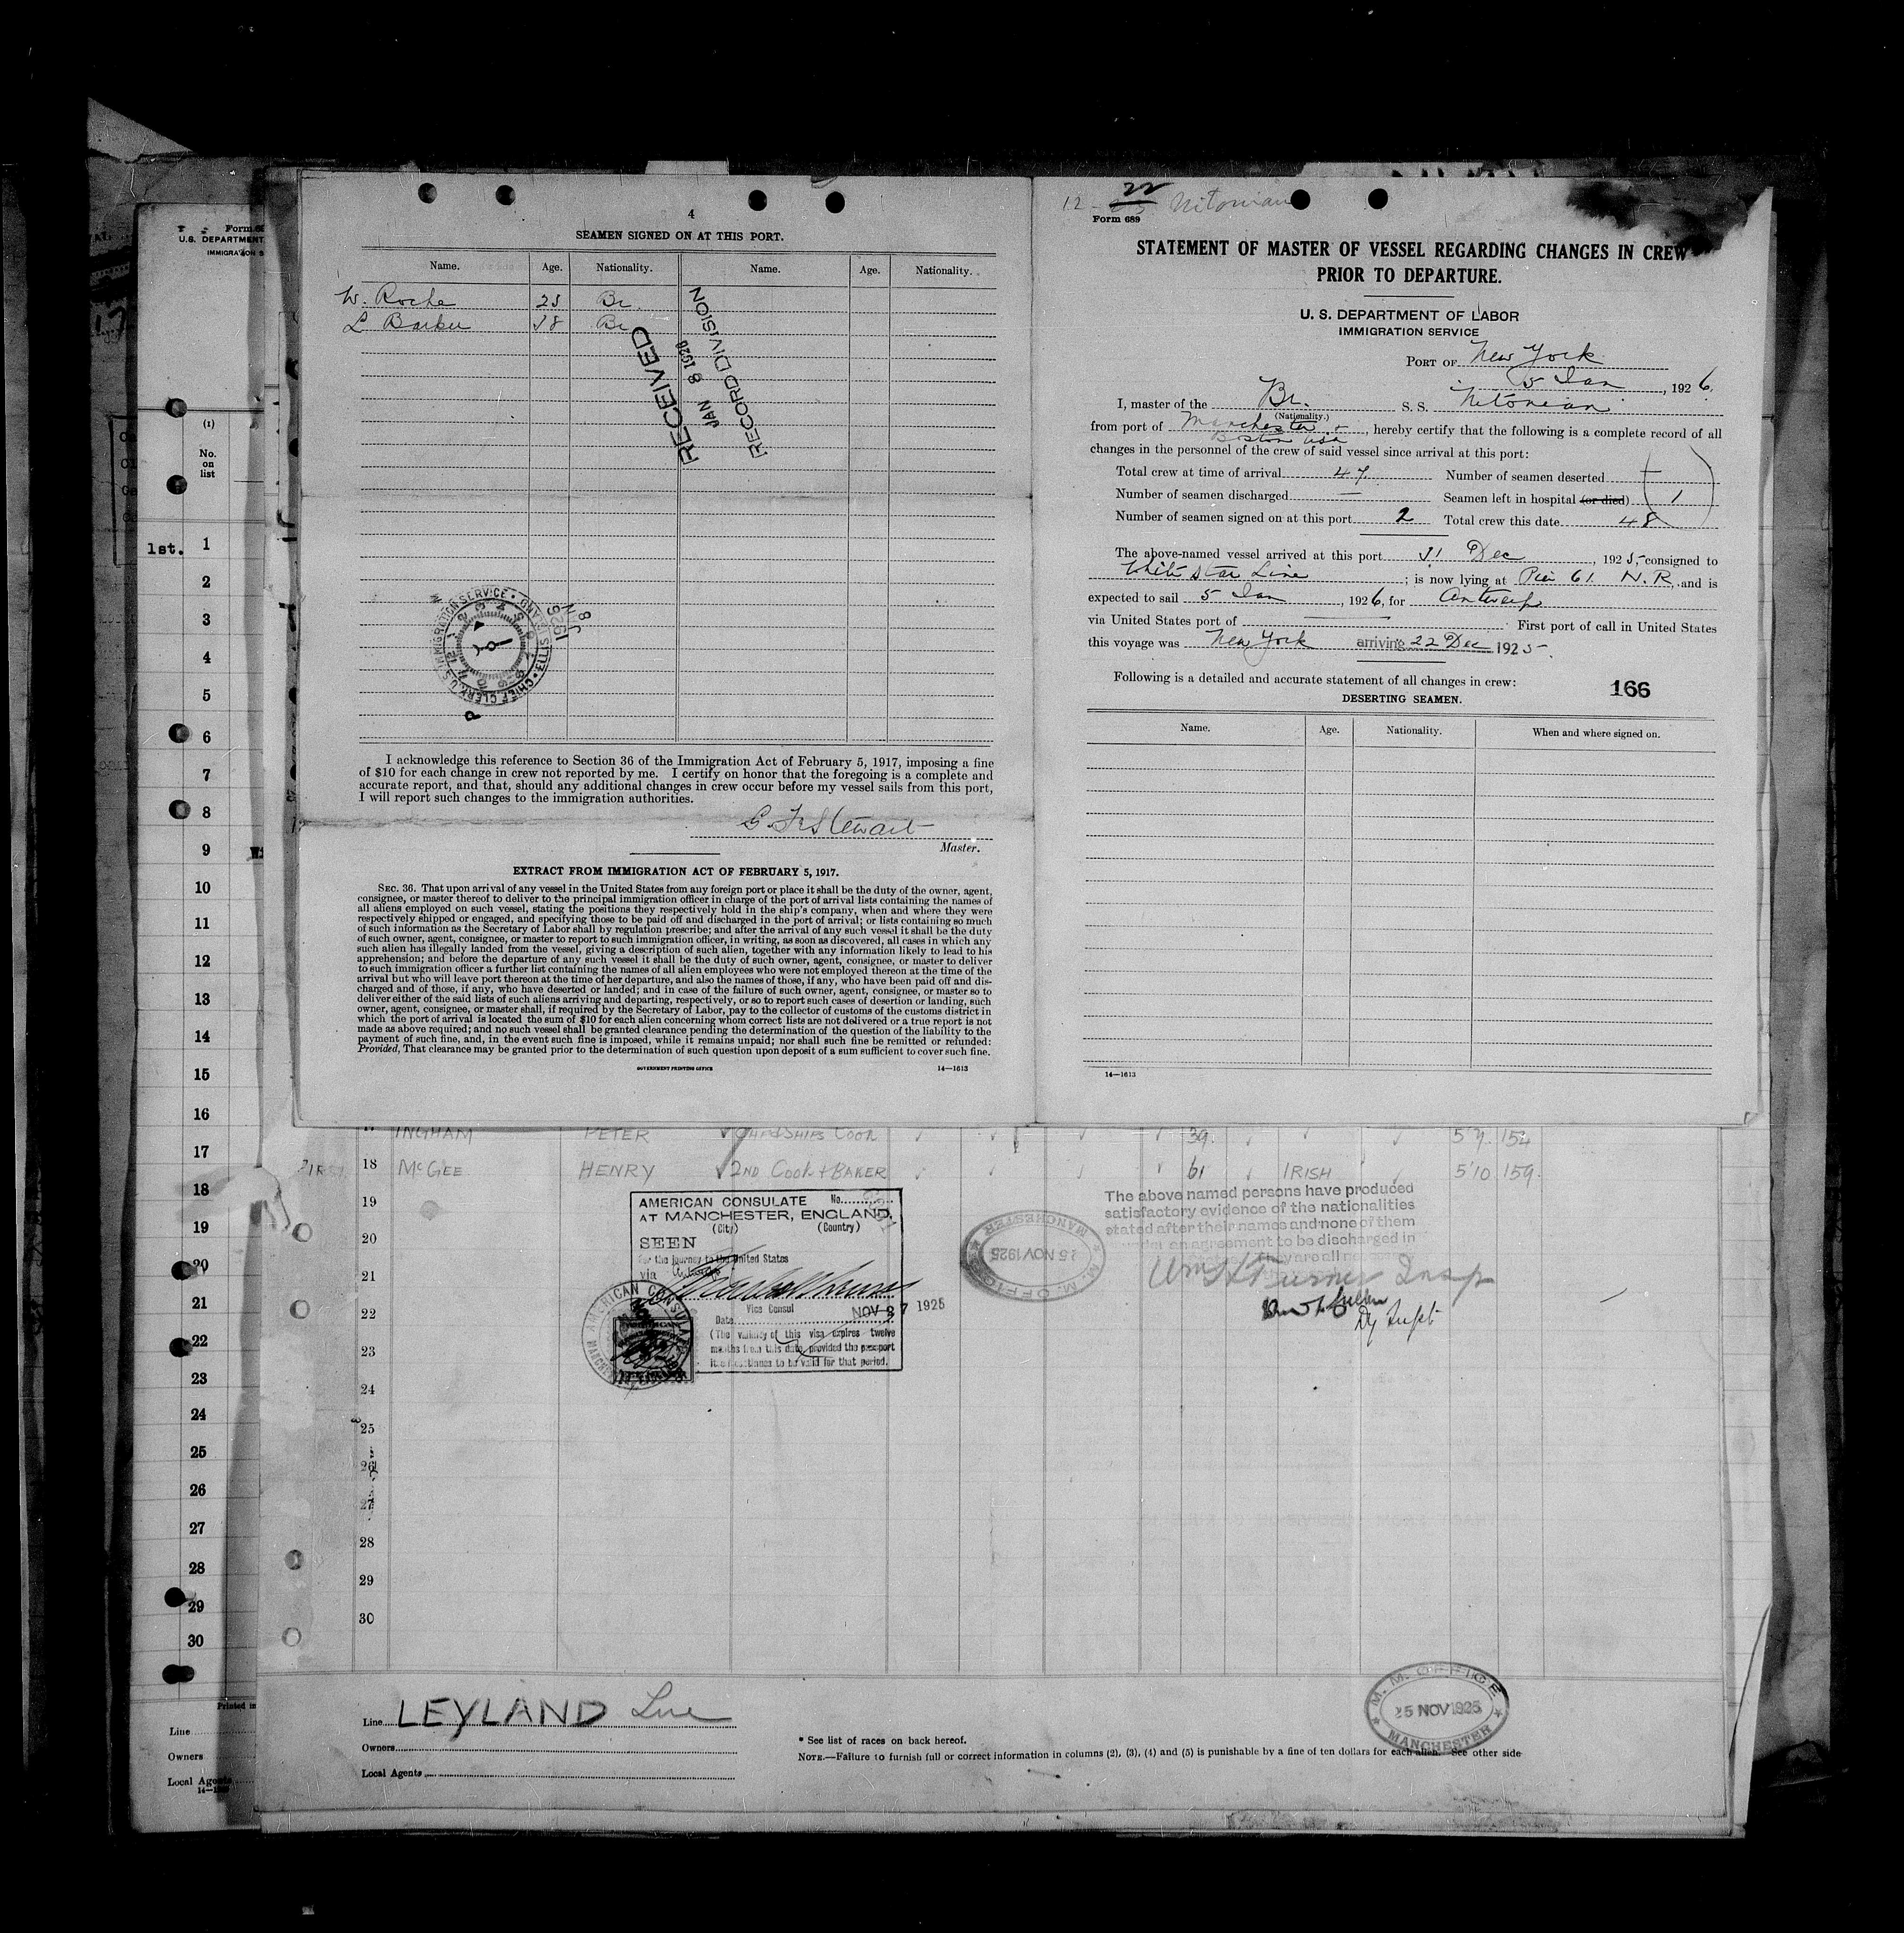 4
SEAMEN SIGNED ON AT THIS PORT.
Name. Age. Nationality. Name. Age. Nationality.
W. Roche 25 Br.
L Barker 38 Br
RECEIVED
JAN 8 1926
RECORD DIVISION
CHIEF CLERK, U.S. IMMIGRATION SERVICE • ELLIS ISLAND
I acknowledge this reference to Section 36 of the Immigration Act of February 5, 1917, imposing a fine
of $10 for each change in crew not reported by me. I certify on honor that the foregoing is a complete and
accurate report, and that, should any additional changes in crew occur before my vessel sails from this port,
I will report such changes to the immigration authorities.
Stewart
Master.
EXTRACT FROM IMMIGRATION ACT OF FEBRUARY 5, 1917.
SEC. 36. That upon arrival of any vessel in the United States from any foreign port or place it shall be the duty of the owner, agent,
consignee, or master thereof to deliver to the principal immigration officer in charge of the port of arrival lists containing the names of
all aliens employed on such vessel, stating the positions they respectively hold in the ship's company, when and where they were
respectively shipped or engaged, and specifying those to be paid off and discharged in the port of arrival; or lists containing so much
of such information as the Secretary of Labor shall by regulation prescribe; and after the arrival of any such vessel it shall be the duty
of such owner, agent, consignee, or master to report to such immigration officer, in writing, as soon as discovered, all cases in which any
such alien has illegally landed from the vessel, giving a description of such alien, together with any information likely to lead to his
apprehension; and before the departure of any such vessel it shall be the duty of such owner, agent, consignee, or master to deliver
to such immigration officer a further list containing the names of all alien employees who were not employed thereon at the time of the
arrival but who will leave port thereon at the time of her departure, and also the names of those, if any, who have been paid off and dis-
charged and of those, if any, who have deserted or landed; and in case of the failure of such owner, agent, consignee, or master so to
deliver either of the said lists of such aliens arriving and departing, respectively, or so to report such cases of desertion or landing, such
owner, agent, consignee, or master shall, if required by the Secretary of Labor, pay to the collector of customs of the customs district in
which the port of arrival is located the sum of $10 for each alien concerning whom correct lists are not delivered or a true report is not
made as above required; and no such vessel shall be granted clearance pending the determination of the question of the liability to the
payment of such fine, and, in the event such fine is imposed, while it remains unpaid; nor shall such fine be remitted or refunded:
Provided, That clearance may be granted prior to the determination of such question upon deposit of a sum sufficient to cover such fine.
GOVERNMENT PRINTING OFFICE 14—1613
12 - 22 Nitonian
Form 689
STATEMENT OF MASTER OF VESSEL REGARDING CHANGES IN CREW
PRIOR TO DEPARTURE.
U. S. DEPARTMENT OF LABOR
IMMIGRATION SERVICE
PORT OF New York
5 Jan, 1926.
I, master of the Br. S. S. Nitonian
(Nationality.)
from port of Manchester +, hereby certify that the following is a complete record of all
Boston USA
changes in the personnel of the crew of said vessel since arrival at this port:
Total crew at time of arrival 47. Number of seamen deserted —
Number of seamen discharged — Seamen left in hospital (or died) 1
Number of seamen signed on at this port 2 Total crew this date 48
The above-named vessel arrived at this port 31 Dec, 1925, consigned to
White Star Line; is now lying at Pier 61 N. R. and is
expected to sail 5 Jan, 1926, for Antwerp
via United States port of — First port of call in United States
this voyage was New York arriving 22 Dec 1925.
Following is a detailed and accurate statement of all changes in crew:
166
DESERTING SEAMEN.
Name. Age. Nationality. When and where signed on.
14—1613
Form 68
U.S. DEPARTMENT
IMMIGRATION S
(1)
No.
on
list
1st. 1
2
3
4
5
6
7
8
9
10
11
12
13
14
15
16
17
18
19
20
21
22
23
24
25
26
27
28
29
30
Printed in
Line
Owners
Local Agents
INGHAM PETER SHIPS COOK 39. 5'7. 154
FIRST 18 McGEE HENRY 2ND COOK + BAKER 61 IRISH 5'10 159.
19
20
21
22
23
24
25
26
27
28
29
30
AMERICAN CONSULATE No.
AT MANCHESTER, ENGLAND,
(City) (Country)
SEEN
For the journey to the United States
via
Vice Consul
NOV 27 1925
Date
(The validity of this visa expires twelve
months from this date, provided the passport
itself continues to be valid for that period.
AMERICAN CONSULATE
M. M. OFFICE
25 NOV 1925
MANCHESTER
The above named persons have produced
satisfactory evidence of the nationalities
stated after their names and none of them
an agreement to be discharged in
they are all
Wm H Turner Insp
Dy Supt
Line LEYLAND Line
Owners
Local Agents
* See list of races on back hereof.
NOTE.—Failure to furnish full or correct information in columns (2), (3), (4) and (5) is punishable by a fine of ten dollars for each alien. See other side
M. M. OFFICE
25 NOV 1925
MANCHESTER